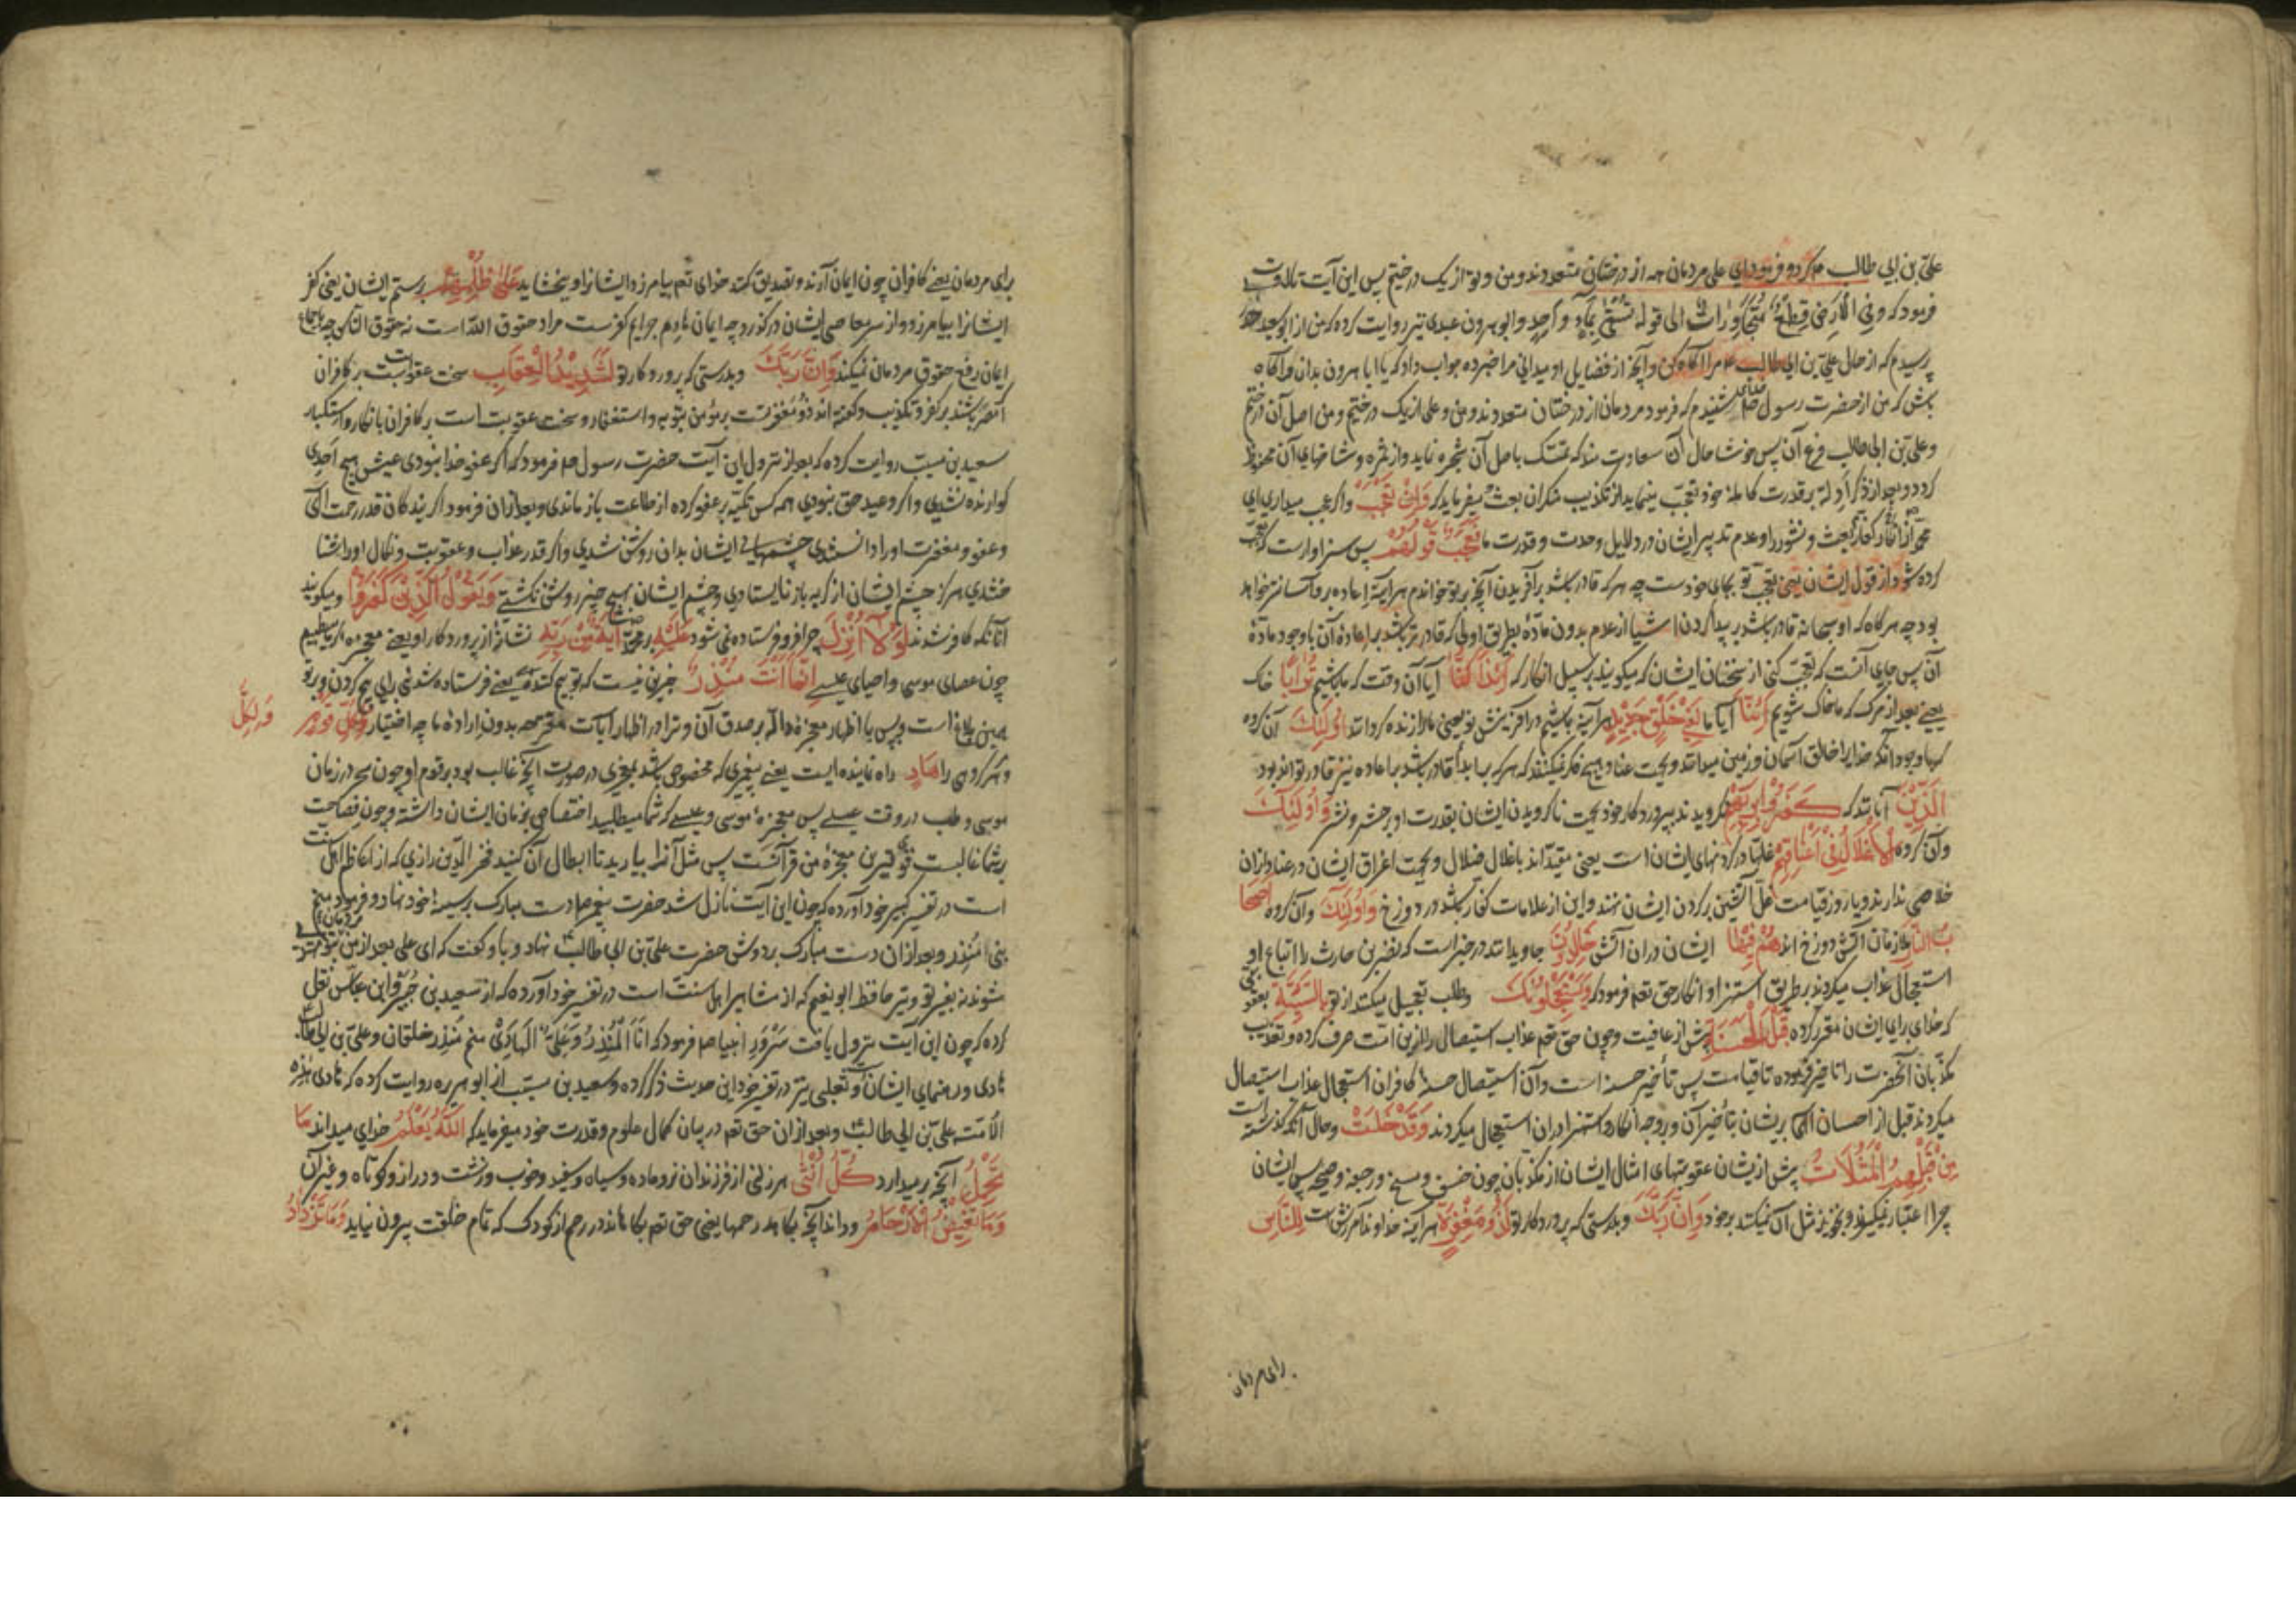 علی بن ابی طالب عم کرد و فرمود ای علی مردمان همه از درختان متعددند و من و تو از یک درختیم پس این آیت تلاوت
فرمود که وفی الارض قطع متجاورات الی قوله تسقی بماء واحد و ابو هرون عبدی نیز روایت کرده که من از ابو سعید
پرسیدم که از حال علی بن ابی طالب عم مرا آگاه کن و آنچه از فضایل او میدانی مرا خبر ده جواب داد که یا ابا هرون بدان و آگاه
باش که من از حضرت رسول صلعم شنیدم که فرمود مردمان از درختان متعددند و من و علی از یک درختیم و من اصل آن درختم
و علی بن ابی طالب فرع آن پس خوشا حال آن سعادت مند که تمسک باصل آن شجره نماید و از ثمره و شاخهای آن محظوظ
کردد و بعد از ذکر ادله بر قدرت کامله خود تعجب مینماید از تکذیب منکران بعث میفرماید که وَاِنْ تَعْجَبْ و اگر عجب میداری ای
محمد از انکار کفار بعث و نشور را و عدم تدبیر ایشان در دلایل وحدت و قدرت ما فَعَجَبٌ قَوْلُهُمْ پس سزاوار است که تعجب
کرده شود از قول ایشان یعنی تعجب تو بجای خودست چه هر که قادر باشد بر آفریدن آنچه بر تو خواندم هر آینه اعاده بر و آسانتر خواهد
بود چه هرگاه که او سبحانه قادر باشد بر پیدا کردن اشیا از عدم بدون ماده بطریق اولی که قادرتر باشد بر اعاده آن با وجود ماده
آن پس جای آنست که تعجب کنی از سخنان ایشان که میگویند بر سبیل انکار که ءَاِذَا كُنَّا آیا آن وقت که ما باشیم تُرَابًا خاک
یعنی بعد از مرگ که ما خاک شویم ءَاِنَّا آیا ما لَفِي خَلْقٍ جَدِيدٍ هر آینه باشیم در آفرینش نو یعنی ما را زنده گردانند اُولٰئِكَ آن کروه
که با وجود آنکه خدا را خالق آسمان و زمین میدانند و بجهت عناد هیچ فکر نمیکنند که هر که بر ابدا قادر باشد بر اعاده نیز قادر تواند بود
الَّذِينَ آنانند که كَفَرُوا بِرَبِّهِمْ نگرویدند بپروردگار خود بجهت ناگرویدن ایشان بقدرت او بر حشر و نشر وَاُولٰئِكَ
و آن کروه الْاَغْلَالُ فِي اَعْنَاقِهِمْ غلها در گردنهای ایشان است یعنی مقیداند باغلال ضلال و بجهت اغراق ایشان در عناد از آن
خلاصی ندارند و یا روز قیامت غل آتشین بر گردن ایشان نهند و این از علامات کفار باشد در دوزخ وَاُولٰئِكَ و آن کروه اَصْحَا
بُ النَّارِ ملازمان آتش دوزخ اند هُمْ فِيهَا ایشان در آن آتش خَالِدُونَ جاویدانند در خبر است که نضر بن حارث را اتباع او
استعجال عذاب میکردند بر طریق استهزا و انکار حق تعم فرمود که وَيَسْتَعْجِلُونَكَ و طلب تعجیل میکنند از تو بِالسَّيِّئَةِ بعقوبتی
که خدای برای ایشان مقرر کرده قَبْلَ الْحَسَنَةِ پیش از عافیت و چون حق تعم عذاب استیصال را ازین امت صرف کرده و تعذیب
مکذبان آنحضرت را تاخیر فرموده تا قیامت پس تاخیر حسنه است و آن استیصال سیئه کافران استعجال عذاب استیصال
میکردند قبل از احسان الهی بر ایشان بتاخیر آن و بر وجه انکار و استهزا در آن استعجال میکردند وَقَدْ خَلَتْ و حال آنکه گذشته است
مِنْ قَبْلِهِمُ الْمَثُلَاتُ پیش از ایشان عقوبتهای امثال ایشان از مکذبان چون خسف و مسخ و رجفه و صیحه پس ایشان
چرا اعتبار نمیگیرند و تجویز مثل آن نمیکنند بر خود وَاِنَّ رَبَّكَ و بدرستی که پروردگار تو لَذُو مَغْفِرَةٍ هر آینه خداوند آمرزش است لِلنَّاسِ
برای مردمان
برای مردمان یعنی کافران چون ایمان آرند و تصدیق کنند خدای تعم بیامرزد ایشانرا و ببخشاید عَلٰى ظُلْمِهِمْ بر ستم ایشان یعنی کفر
ایشانرا بیامرزد و از سر معاصی ایشان درگذرد چه ایمان هادم جرایم کفرست مراد حقوق الله است نه حقوق الناس چه
ایمان رفع حقوق مردمان نمیکند وَاِنَّ رَبَّكَ و بدرستی که پروردگار تو لَشَدِيدُ الْعِقَابِ سخت عقوبت است بر کافران
اگر مصر باشند بر کفر و تکذیب و گفته اند ذو مغفرتست بر مؤمن بتوبه و استغفار و سخت عقوبت است بر کافران بانکار و استکبار
سعید بن مسیب روایت کرده که بعد از نزول این آیت حضرت رسول صم فرمود که اگر عفو خدا نبودی عیش هیچ احدی
گوارنده نشدی و اگر وعید حق نبودی همه کس تکیه بر عفو کرده از طاعت باز ماندی و بعد از آن فرمود اگر بندگان قدر رحمت الهی
و عفو و مغفرت او را دانسندی چشمهای ایشان بدان روشن شدی و اگر قدر عذاب و عقوبت و نکال او را شنا
ختندی هرگز چشم ایشان از گریه باز نایستادی و چشم ایشان بهیچ چیز روشن نگشتی وَيَقُولُ الَّذِينَ كَفَرُوا و میگویند
آنانکه کافر شدند لَوْلَا اُنْزِلَ چرا فرو فرستاده نمی شود عَلَيْهِ بر محمد صلعم اٰيَةٌ مِنْ رَبِّهِ نشانه از پروردگار او یعنی معجزه که ما میطلبیم
چون عصای موسی و احیای عیسی اِنَّمَا اَنْتَ مُنْذِرٌ جز این نیست که تو بیم کننده یعنی فرستاده شدنی برای بیم کردن و بر تو
همین بلاغ است و بس یا اظهار معجزه داله بر صدق آن و ترا در اظهار آیات مقترحه بدون اراده ما چه اختیار وَلِكُلِّ قَوْمٍ
وَلِكُلِّ
و هر گروهی را هَادٍ راه نماینده ایست یعنی پیغمبری که مخصوص باشد بمعجزی در صورت آنچه غالب بود بر قوم او چون سحر در زمان
موسی و طب در وقت عیسی پس معجزه موسی و عیسی که شما میطلبید اختصاص بزمان ایشان داشته و چون فصاحت
بر شما غالبست قوی ترین معجزه من قرآنست پس مثل آنرا بیارید تا ابطال آن کنید فخر الدین رازی که از اعاظم اهل سنت
است در تفسیر کبیر خود آورده که چون این آیت نازل شد حضرت پیغمبر صم دست مبارک بر سینه خود نهاد و فرمود منم
منذر و بعد از آن دست مبارک بر دوش حضرت علی بن ابی طالب نهاد و باو گفت که ای علی بعد از من بتو مهتدی
شوند نه بغیر تو و نیز حافظ ابو نعیم که از مشاهیر اهل سنت است در تفسیر خود آورده که از سعید بن جبیر و ابن عباس نقل
کرده که چون این آیت نزول یافت سرور انبیا صم فرمود که انا المنذر و علی الهادی منم منذر خلقان و علی بن ابی طالب
هادی و رهنمای ایشان و ثعلبی نیز در تفسیر خود این حدیث ذکر کرده و سعید بن مسیب از ابو هریره روایت کرده که هادی هذه
الامت علی بن ابی طالب و بعد از آن حق تعم در بیان کمال علوم و قدرت خود میفرماید که اَللّٰهُ يَعْلَمُ خدای میداند مَا
تَحْمِلُ آنچه بر میدارد كُلُّ اُنْثٰى هر زنی از فرزندان نر و ماده و سیاه و سفید و خوب و زشت و دراز و کوتاه و غیر آن
وَمَا تَغِيضُ الْاَرْحَامُ و داند آنچه بکاهد رحمها یعنی حق تعم بکاهاند در رحم از کودک که تمام خلقت بیرون نیاید وَمَا تَزْدَادُ